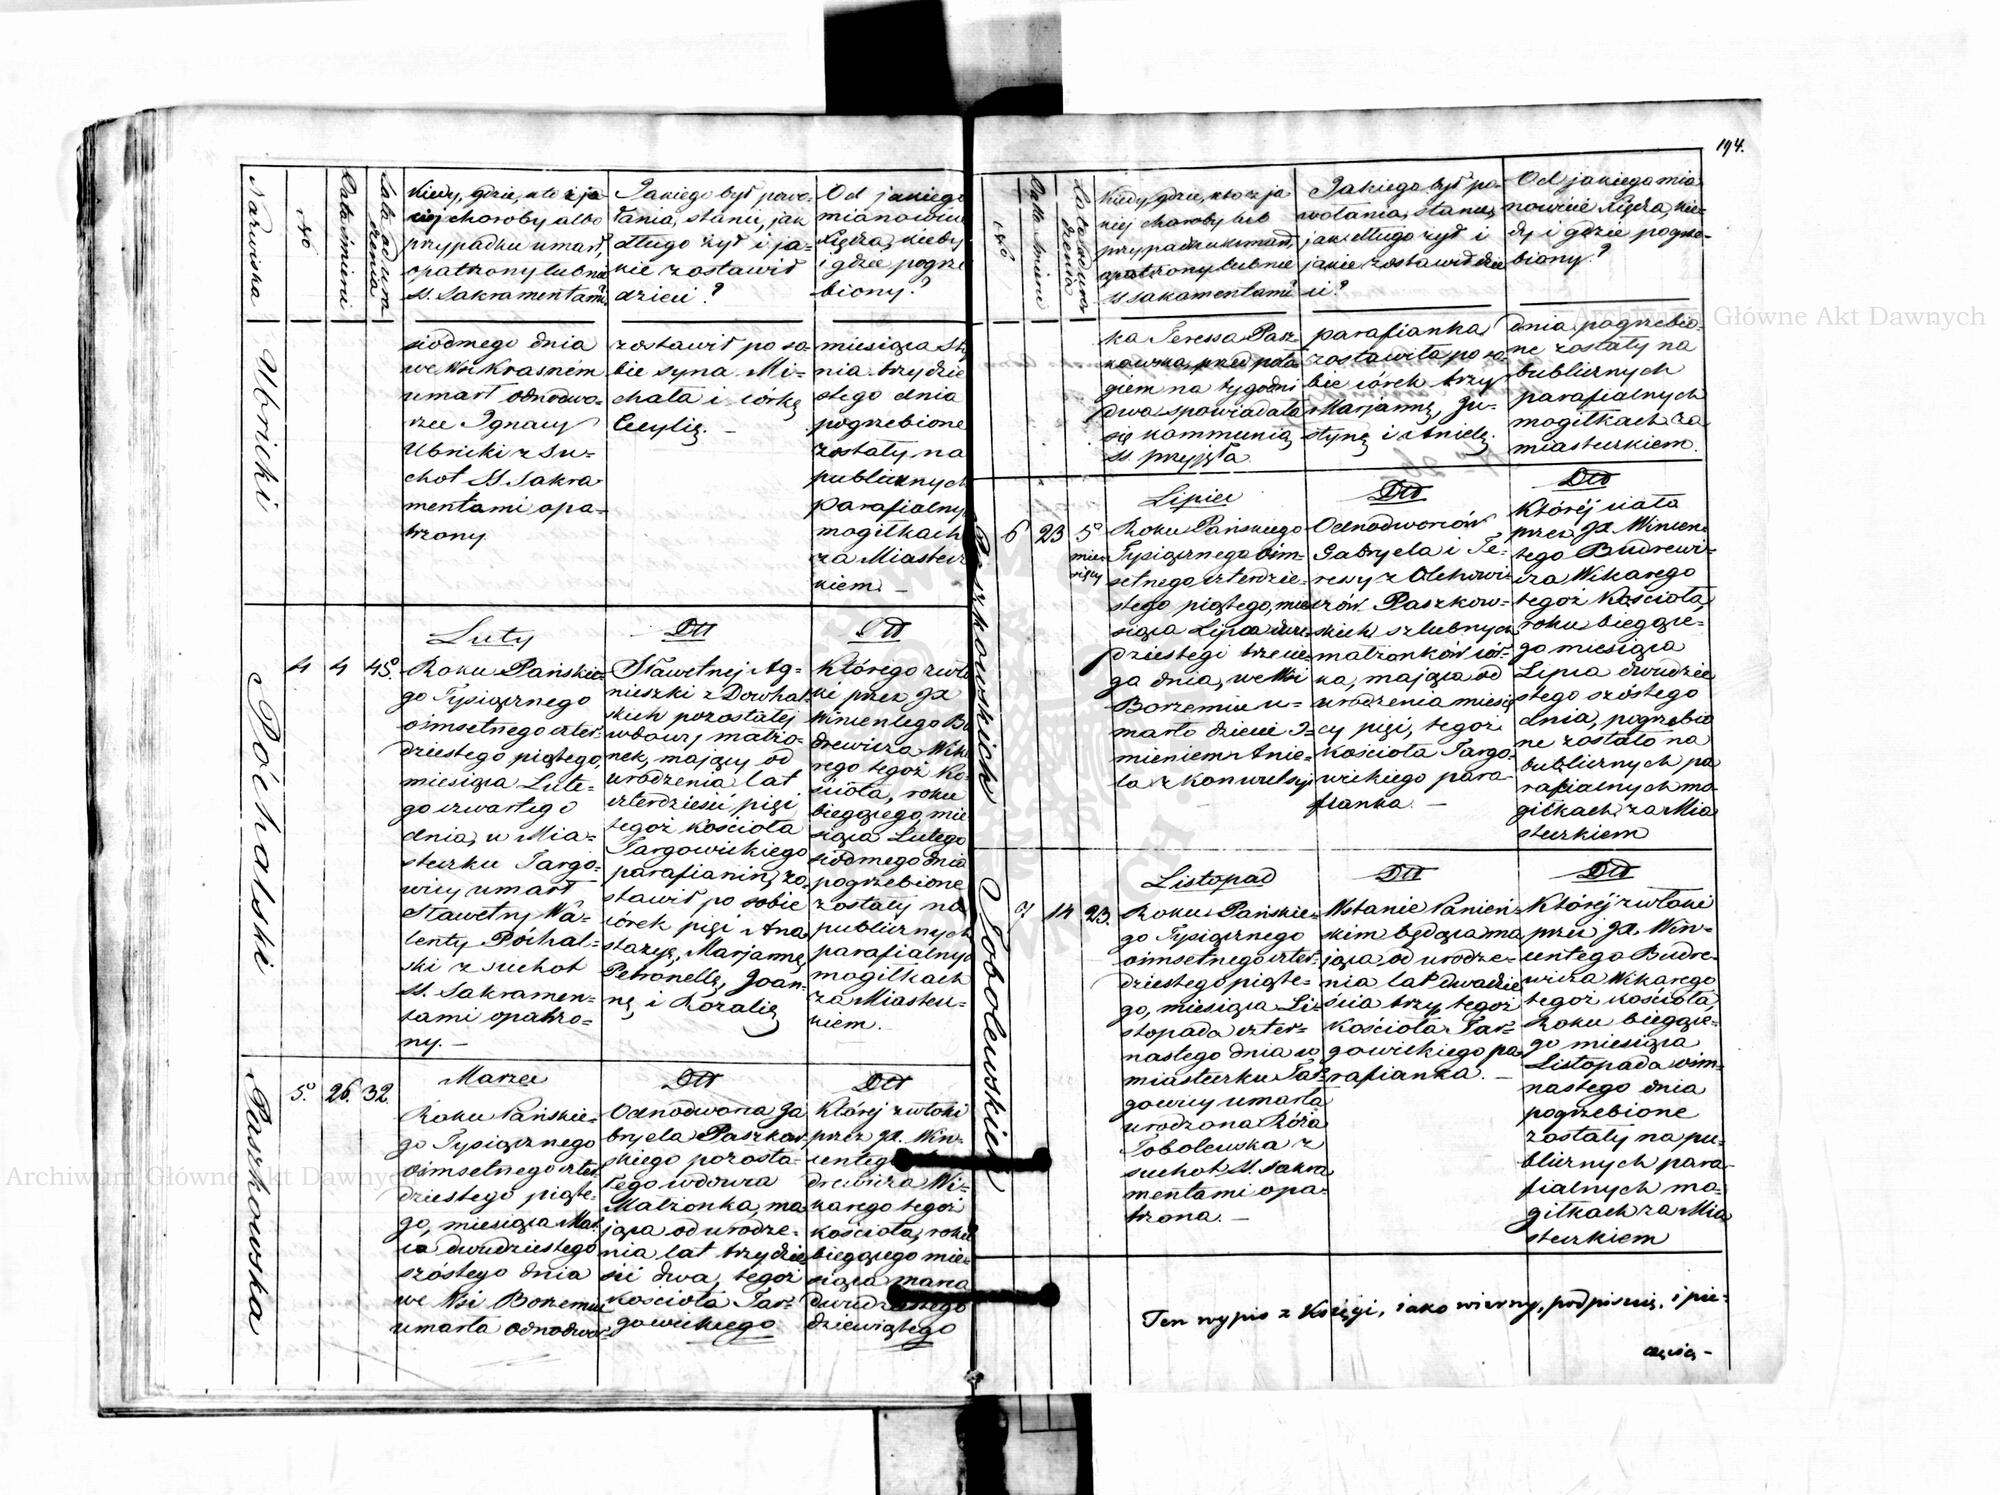 194.
Nazwiska
No
Data śmierci
Lata od uro
dzenia
Kiedy, gdzie, kto z ja
kiej choroby albo
przypadku umarł,
opatrzony lub nie
SS. Sakramentami?
Jakiego był powo-
łania, stanu, jak
długo żył i ja-
kie zostawił
dzieci?
Od jakiego
mianowicie
Xiędza, kiedy
i gdzie pogrze
biony?
Ubnicki
siódmego dnia
we Wsi Krasnem
umarł Odnodwo-
rzec Ignacy
Ubnicki z su-
chot SS. Sakra
mentami opa-
trzony
zostawił po so-
bie syna Mi-
chała i córkę
Cecylię. —
miesiąca Sty
nia trzydzie
stego dnia
pogrzebione
zostały na
publicznych
parafialny
mogiłkach
za Miastecz
kiem. —
Póchalski
4
4
45.
Luty
Roku Pańskie-
go Tysiącznego
ośmsetnego czter-
dziestego piątego,
miesiąca Lute-
go czwartego
dnia, w Mia-
steczku Targo-
wicy umarł
Sławetny Wa-
lenty Póchal-
ski z suchot
SS. Sakramen-
tami opatrzo-
ny. —
Dtt
Sławetnej Ag-
nieszki z Dowhal
skich pozostałej
wdowy małżo-
nek, mający od
urodzenia lat
czterdzieści pięć
tegoż kościoła
Targowickiego
parafianin, zo-
stawił po sobie
córek pięć Ana
stazyę, Marjannę
Petronellę, Joan-
nę i Rozalię
Dtt
Którego zwło
ki przez JX
Wincentego Bu
drewicza Wika
rego tegoż Ko-
ścioła, roku
bieżącego mie
siąca Lutego
siódmego dnia
pogrzebione
zostały na
publicznych
parafialnych
mogiłkach
za Miastecz-
kiem. —
Paszkowska
5.
26.
32.
Marzec
Roku Pańskie-
go Tysiącznego
ośmsetnego czter
dziestego piąte-
go, miesiąca Mar
ca dwudziestego
szóstego dnia
we Wsi Borzemiu
umarła Odnodwor
Dtt
Odnodworca Ga
bryela Paszkow
skiego pozosta-
łego wdowca
Małżonka, ma
jąca od urodze-
nia lat trzydzie
ści dwa, tegoż
kościoła Tar-
gowickiego
Dtt
Której zwłoki
przez JX. Win-
centego
drewicza Wi-
karego tegoż
kościoła, roku
bieżącego mie-
siąca marca
dwudziestego
dziewiątego
No
Data śmierci
Lata od uro
dzenia
Kiedy, gdzie, kto z ja
kiej choroby lub
przypadku umarł,
opatrzony lub nie
SS sakramentami?
Jakiego był po-
wołania, stanu,
jak długo żył i
jakie zostawił dzie
ci?
Od jakiego mia
nowicie Xiędza, kie-
dy i gdzie pogrze-
biony?
ka Teressa Pasz-
kowska, przed poło
giem na tygodni
dwa spowiadała
się kommunią
SS. przyjęła
parafianka
zostawiła po so-
bie córek trzy
Marjannę, Ju-
stynę i Anielę.
dnia, pogrzebio-
ne zostały na
publicznych
parafialnych
mogiłkach za
miasteczkiem.
Paszkowskich
6
23
5.
mie
sięcy
Lipiec
Roku Pańskiego
Tysiącznego ośm-
setnego czterdzie-
stego piątego, mie
siąca Lipca dwu-
dziestego trzecie-
go dnia, we Wsi
Borzemiu u-
marło dziecie I-
mieniem Anie-
la z konwulsyi
Dtt
Odnodworców
Gabryela i Te-
ressy z Olchowi-
czów Paszkow-
skich szlubnych
małżonków cór-
ka, mająca od
urodzenia miesię
cy pięć, tegoż
kościoła Targo-
wickiego para-
fianka. —
Dtt
Której ciało
przez JX Wincen-
tego Budrewi-
cza Wikarego
tegoż Kościoła,
roku bieżące-
go miesiąca
Lipca dwudzie
stego szóstego
dnia, pogrzebio
ne zostało na
publicznych pa
rafialnych mo-
giłkach za Mia
steczkiem
Tobolewskiej
7
14
23.
Listopad
Roku Pańskie-
go Tysiącznego
ośmsetnego czter-
dziestego piąte-
go, miesiąca Li-
stopada czter-
nastego dnia w
miasteczku Tar-
gowicy umarła
urodzona Róża
Tobolewska z
suchot SS. Sakra
mentami opa-
trzona. —
Dtt
W stanie Panień-
skim będąca ma
jąca od urodze-
nia lat dwadzie
ścia trzy, tegoż
kościoła Tar-
gowickiego pa
rafianka. —
Dtt
Której zwłoki
przez JX. Win-
centego Budre-
wicza Wikarego
tegoż kościoła,
Roku bieżące-
go miesiąca
Listopada ośm-
nastego dnia
pogrzebione
zostały na pu-
blicznych para-
fialnych mo-
giłkach za Mia
steczkiem
Ten wypis z Księgi, jako wierny, podpisuię, i pie-
częcią —
Archiwum Główne Akt Dawnych
Archiwum Główne Akt Dawnych